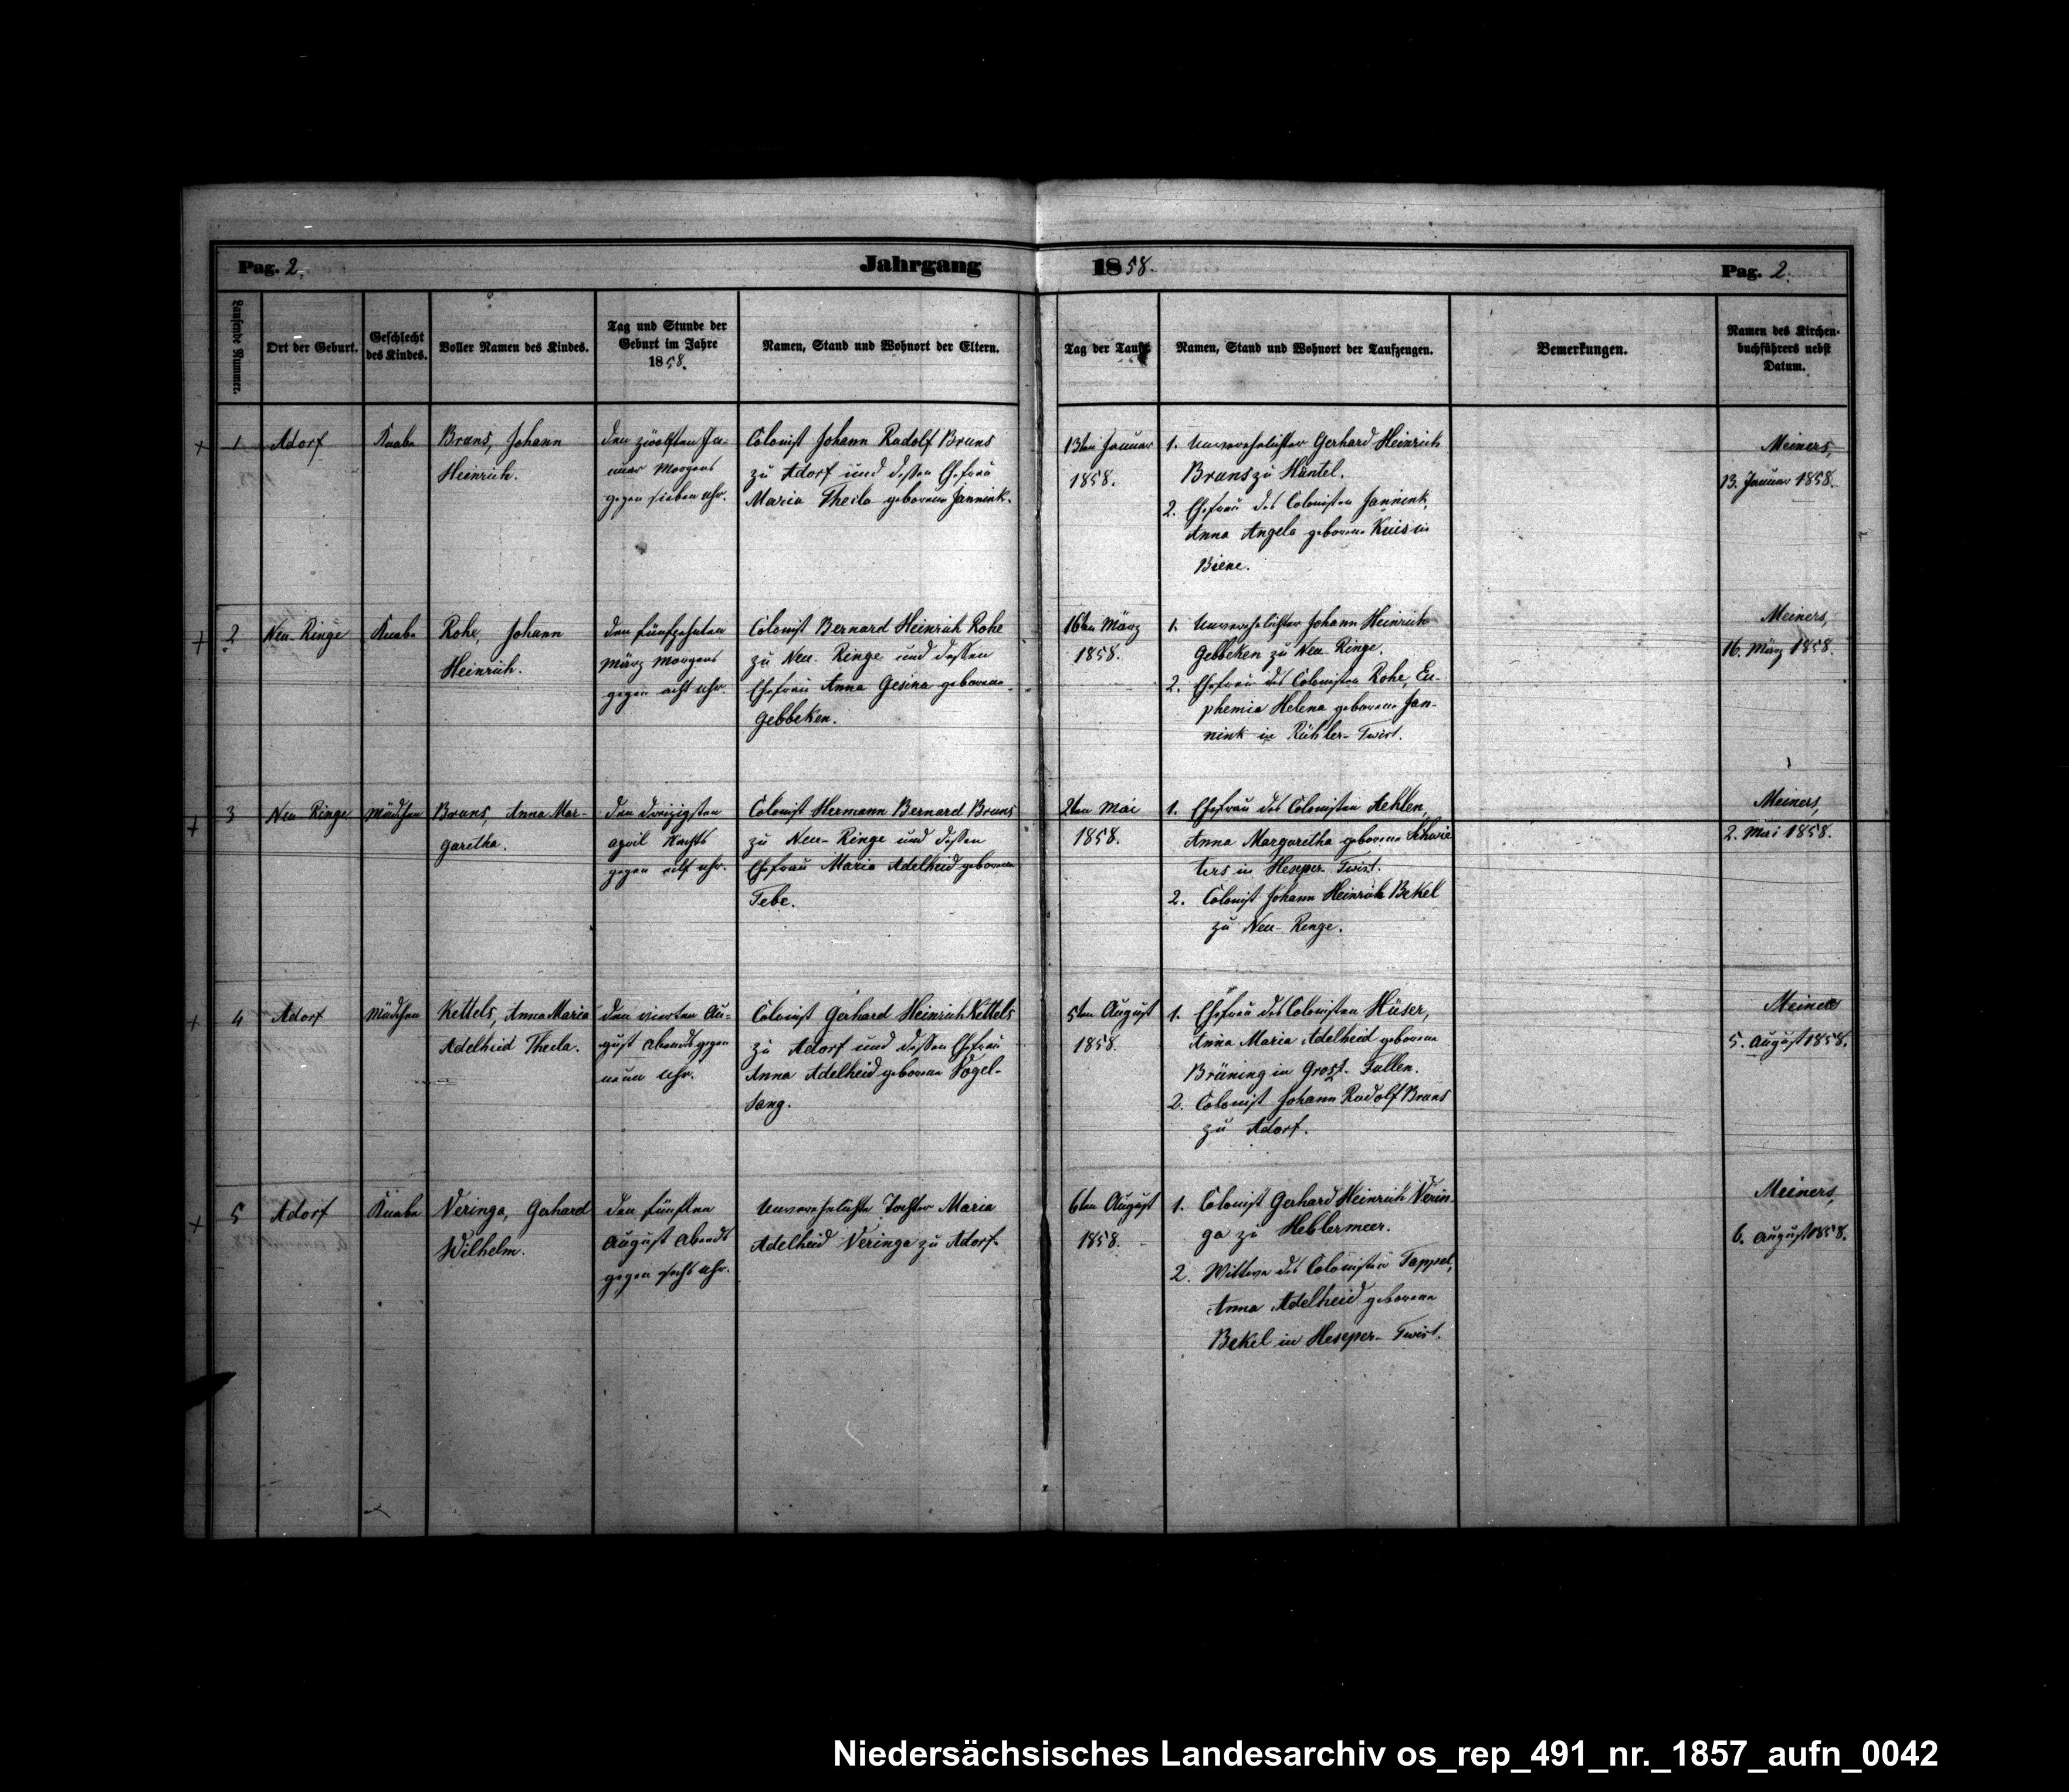 Pag. 2.
Jahrgang 1858.
Pag. 2.
Laufende Nummer.
Ort der Geburt.
Geschlecht
des Kindes.
Voller Namen des Kindes.
Tag und Stunde der
Geburt im Jahre
1858.
Namen, Stand und Wohnort der Eltern.
Tag der Taufe
Namen, Stand und Wohnort der Taufzeugen.
Bemerkungen.
Namen des Kirchen-
buchführers nebst
Datum.
1
Adorf
Knabe
Bruns, Johann
Heinrich.
den zwölften Ja-
nuar Morgens
gegen sieben Uhr.
Colonist Johann Rudolf Bruns
zu Adorf und dessen Ehefrau
Maria Thecla geborene Jannink.
13ten Januar
1858.
1. Unverehelichter Gerhard Heinrich
Bruns zu Häntel.
2. Ehefrau des Colonisten Jannink,
Anna Angela geborene Kuis in
Biene.
Meiners,
13. Januar 1858.
2
Neu-Ringe
Knabe
Rohe, Johann
Heinrich.
den fünfzehnten
März Morgens
gegen acht Uhr.
Colonist Bernard Heinrich Rohe
zu Neu-Ringe und dessen
Ehefrau Anna Gesina geborene
Gebbeken.
16ten März
1858.
1. Unverehelichter Johann Heinrich
Gebbeken zu Neu-Ringe.
2. Ehefrau des Colonisten Rohe, Eu-
phemia Helena geborene Jan-
nink in Rühler-Twist.
Meiners,
16. März 1858.
3
Neu-Ringe
Mädchen
Bruns, Anna Mar-
garetha.
den dreizigsten
April Nachts
gegen eilf Uhr.
Colonist Hermann Bernard Bruns
zu Neu-Ringe und dessen
Ehefrau Maria Adelheid geborene
Tebe.
2ten Mai
1858.
1. Ehefrau des Colonisten Aehlen,
Anna Margaretha geborene Schwie
ters in Heseper-Twist.
2. Colonist Johann Heinrich Bekel
zu Neu-Ringe.
Meiners,
2. Mai 1858.
4
Adorf
Mädchen
Kettels, Anna Maria
Adelheid Thecla.
den vierten Au-
gust Abends gegen
neun Uhr.
Colonist Gerhard Heinrich Kettels
zu Adorf und dessen Ehefrau
Anna Adelheid geborene Vogel-
sang.
5ten August
1858.
1. Ehefrau des Colonisten Hüser,
Anna Maria Adelheid geborene
Brüning in Gross-Fullen.
2. Colonist Johann Rudolf Bruns
zu Adorf.
Meiners
5. August 1858.
5
Adorf
Knabe
Veringa, Gerhard
Wilhelm.
den fünften
August Abends
gegen sechs Uhr.
Unverehelichte Tochter Maria
Adelheid Veringa zu Adorf.
6ten August
1858.
1. Colonist Gerhard Heinrich Verin-
ga zu Heblermeer.
2. Wittwe des Colonisten Tappel,
Anna Adelheid geborene
Bekel in Heseper-Twist.
Meiners,
6. August 1858.
Niedersächsisches Landesarchiv os_rep_491_nr._1857_aufn_0042